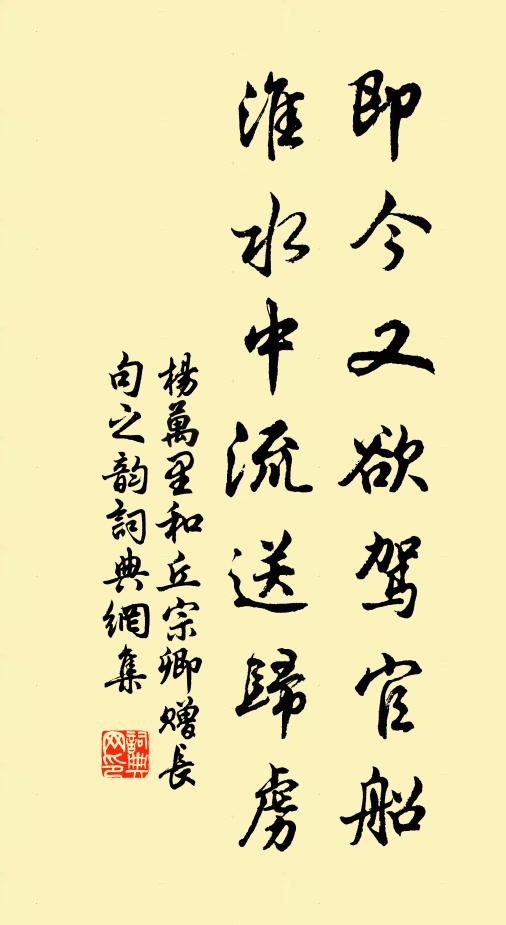 即今又欲駕官船
淮水中流送歸虜
楊萬里和丘宗卿贈長
句之韵詞典網集
詞典網印